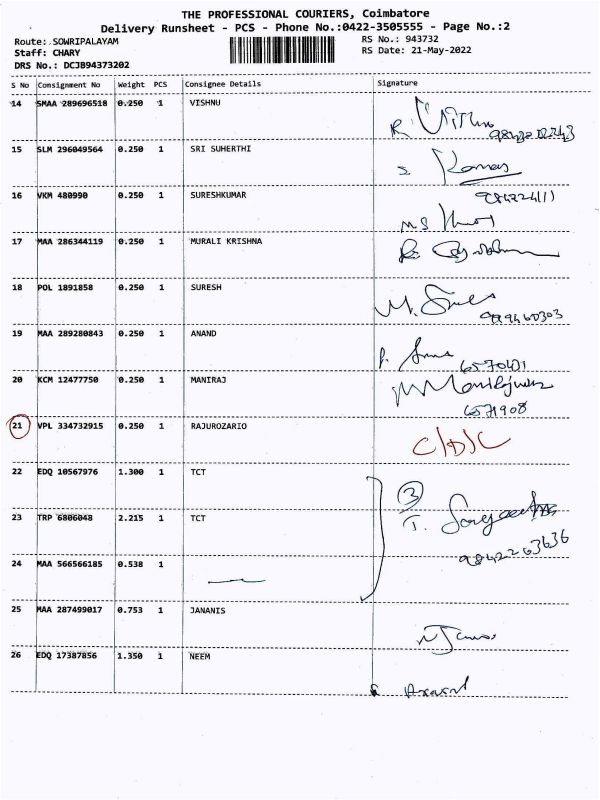 THE PROFESSIONAL COURIERS, Coimbatore
Delivery Runsheet - PCS - Phone No.:0422-3505555 - Page No.:2
Route: SOWRIPALAYAM RS No.: 943732
Staff: CHARY RS Date: 21-May-2022
DRS No.: DCJB94373202
S No Consignment No Weight PCS Consignee Details Signature
14 SMAA 289696518 0.250 1 VISHNU
15 SLM 296049564 0.250 1 SRI SUHERTHI
16 VKM 480990 0.250 1 SURESHKUMAR
17 MAA 286344119 0.250 1 MURALI KRISHNA
18 POL 1891858 0.250 1 SURESH
19 MAA 289280843 0.250 1 ANAND
6570401
20 KCM 12477750 0.250 1 MANIRAJ
6571908
21 VPL 334732915 0.250 1 RAJUROZARIO C/D/C
22 EDQ 10567976 1.300 1 TCT
3
23 TRP 6806048 2.215 1 TCT
9842263636
24 MAA 566566185 0.538 1
25 MAA 287499017 0.753 1 JANANIS
26 EDQ 17387856 1.350 1 NEEM